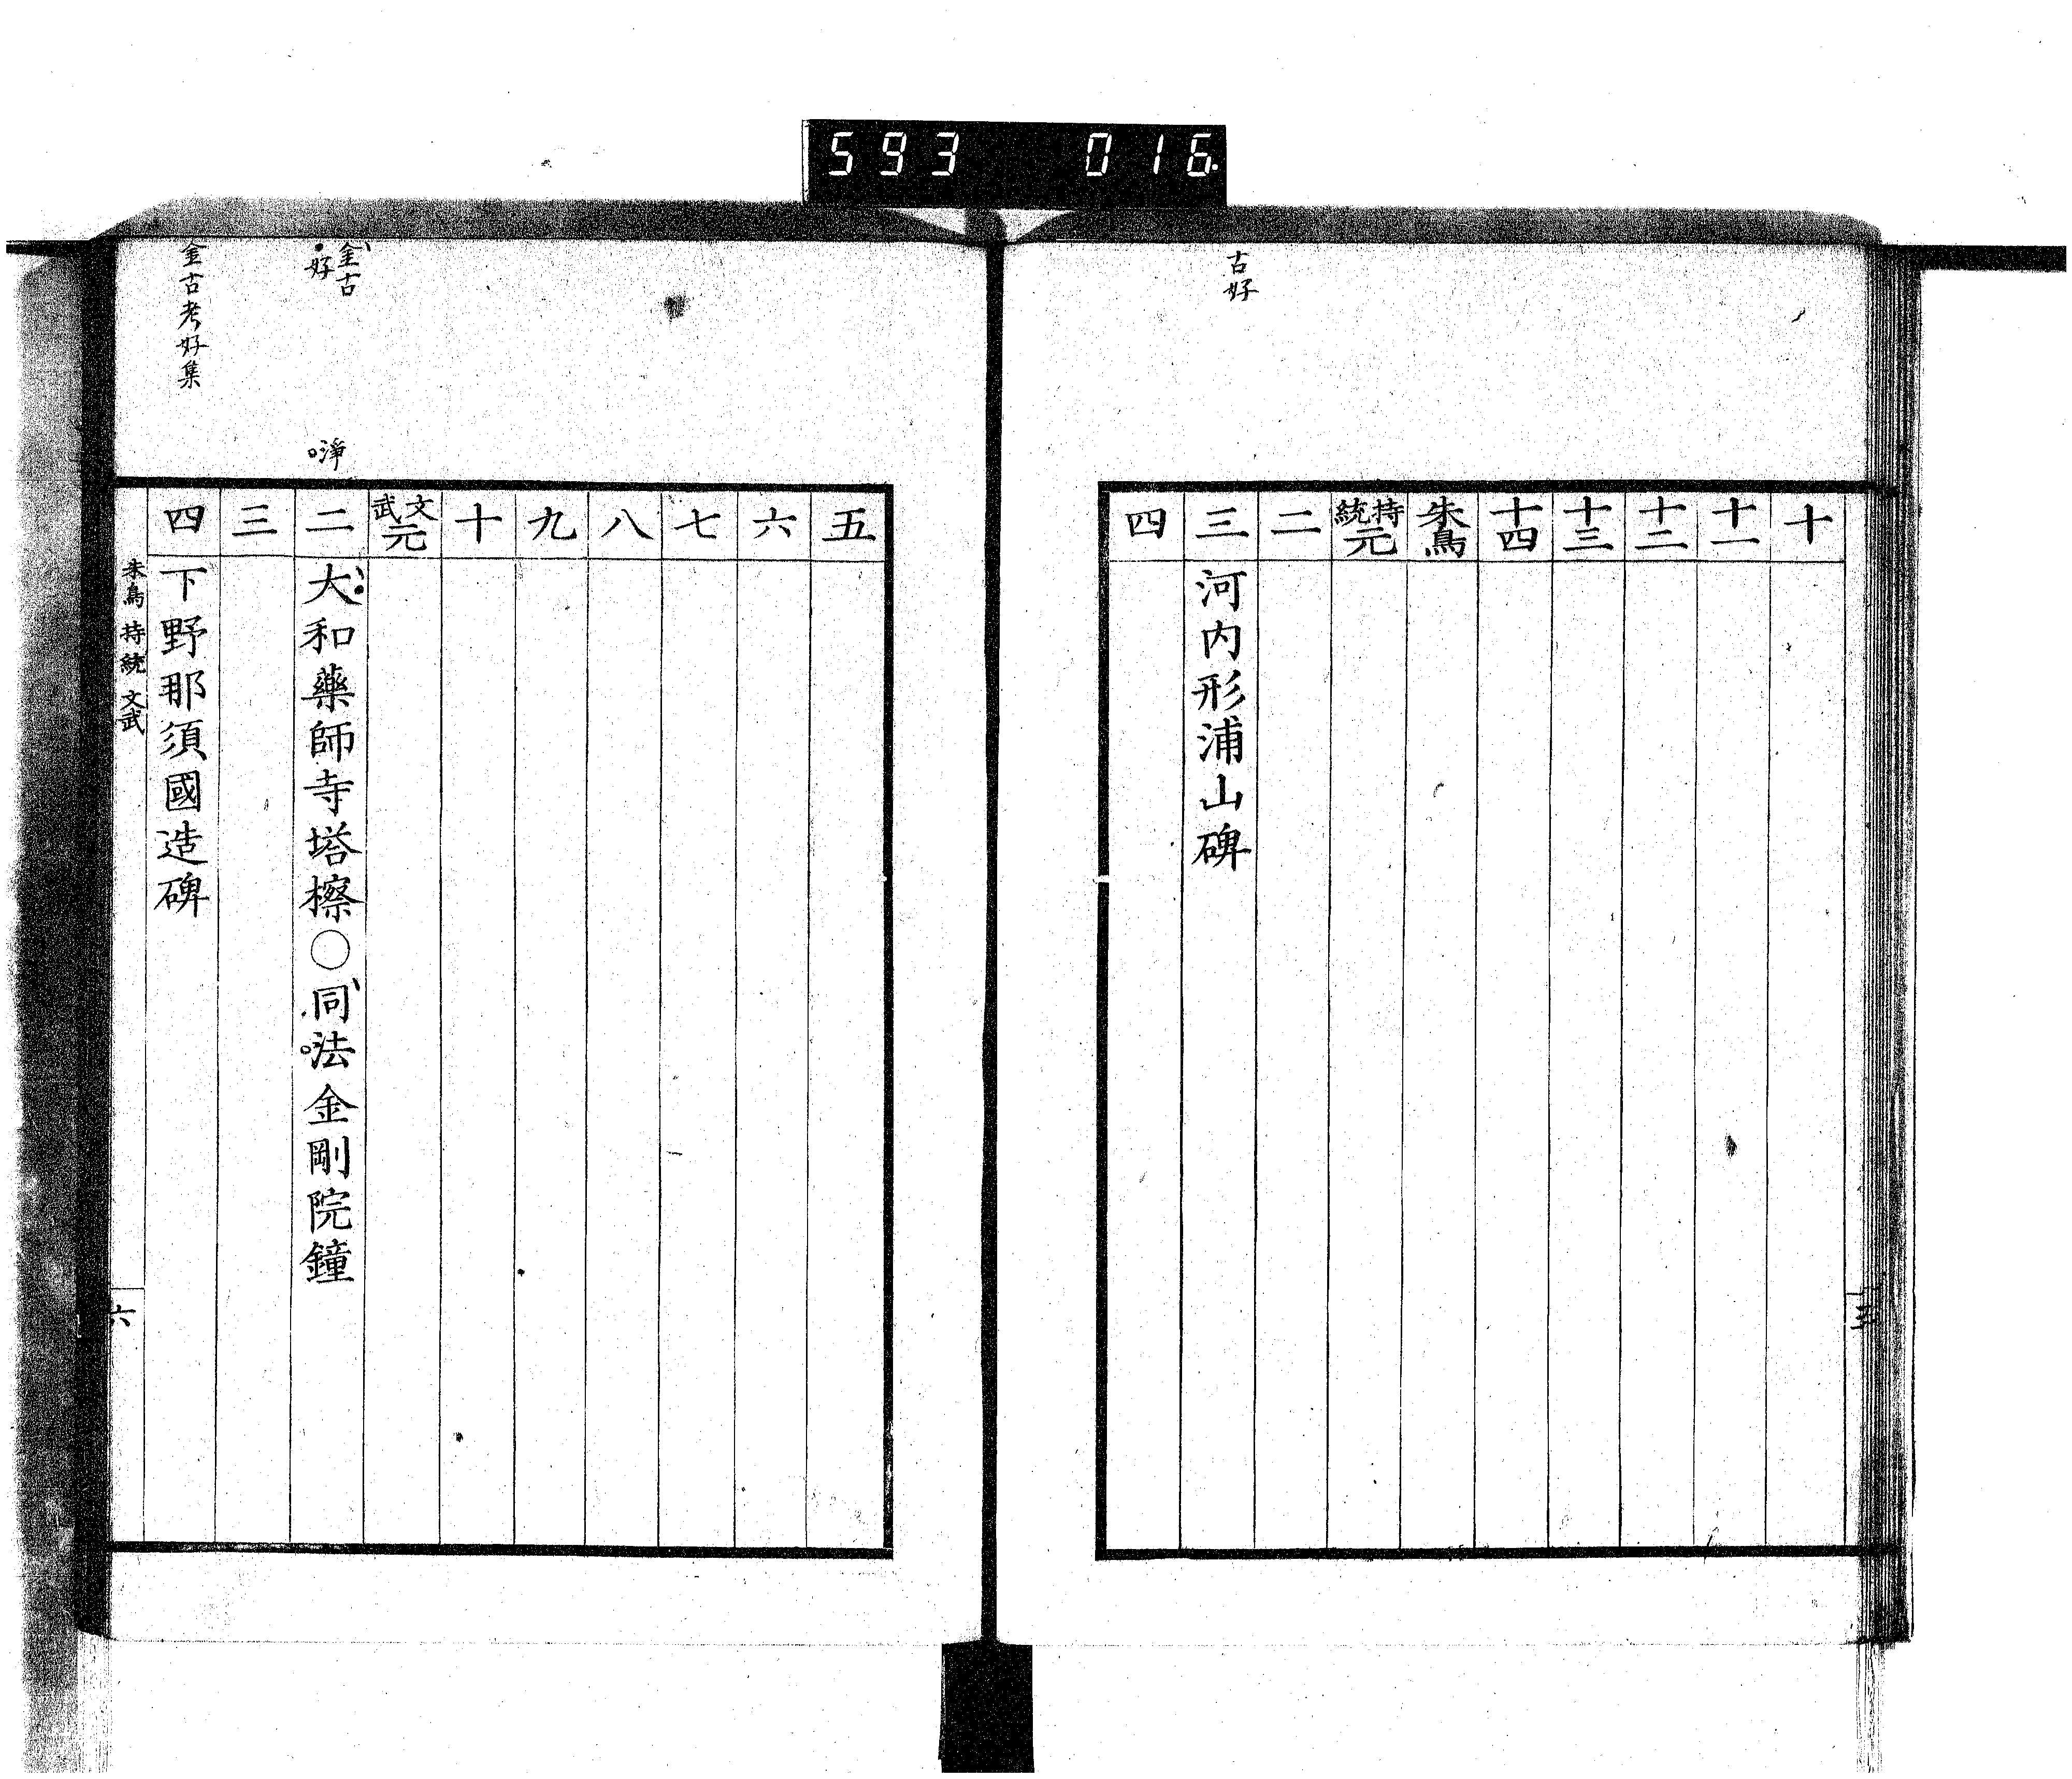 593 016
古好
十
十一
十二
十三
十四
朱鳥
持統元
二
三 河内形浦山碑
四
五
六
七
八
九
十
文武元
金古
好
淨
二 大和藥師寺塔擦○同法金剛院鐘
三
金古考好集
四 下野那須國造碑
朱鳥 持統 文武
六